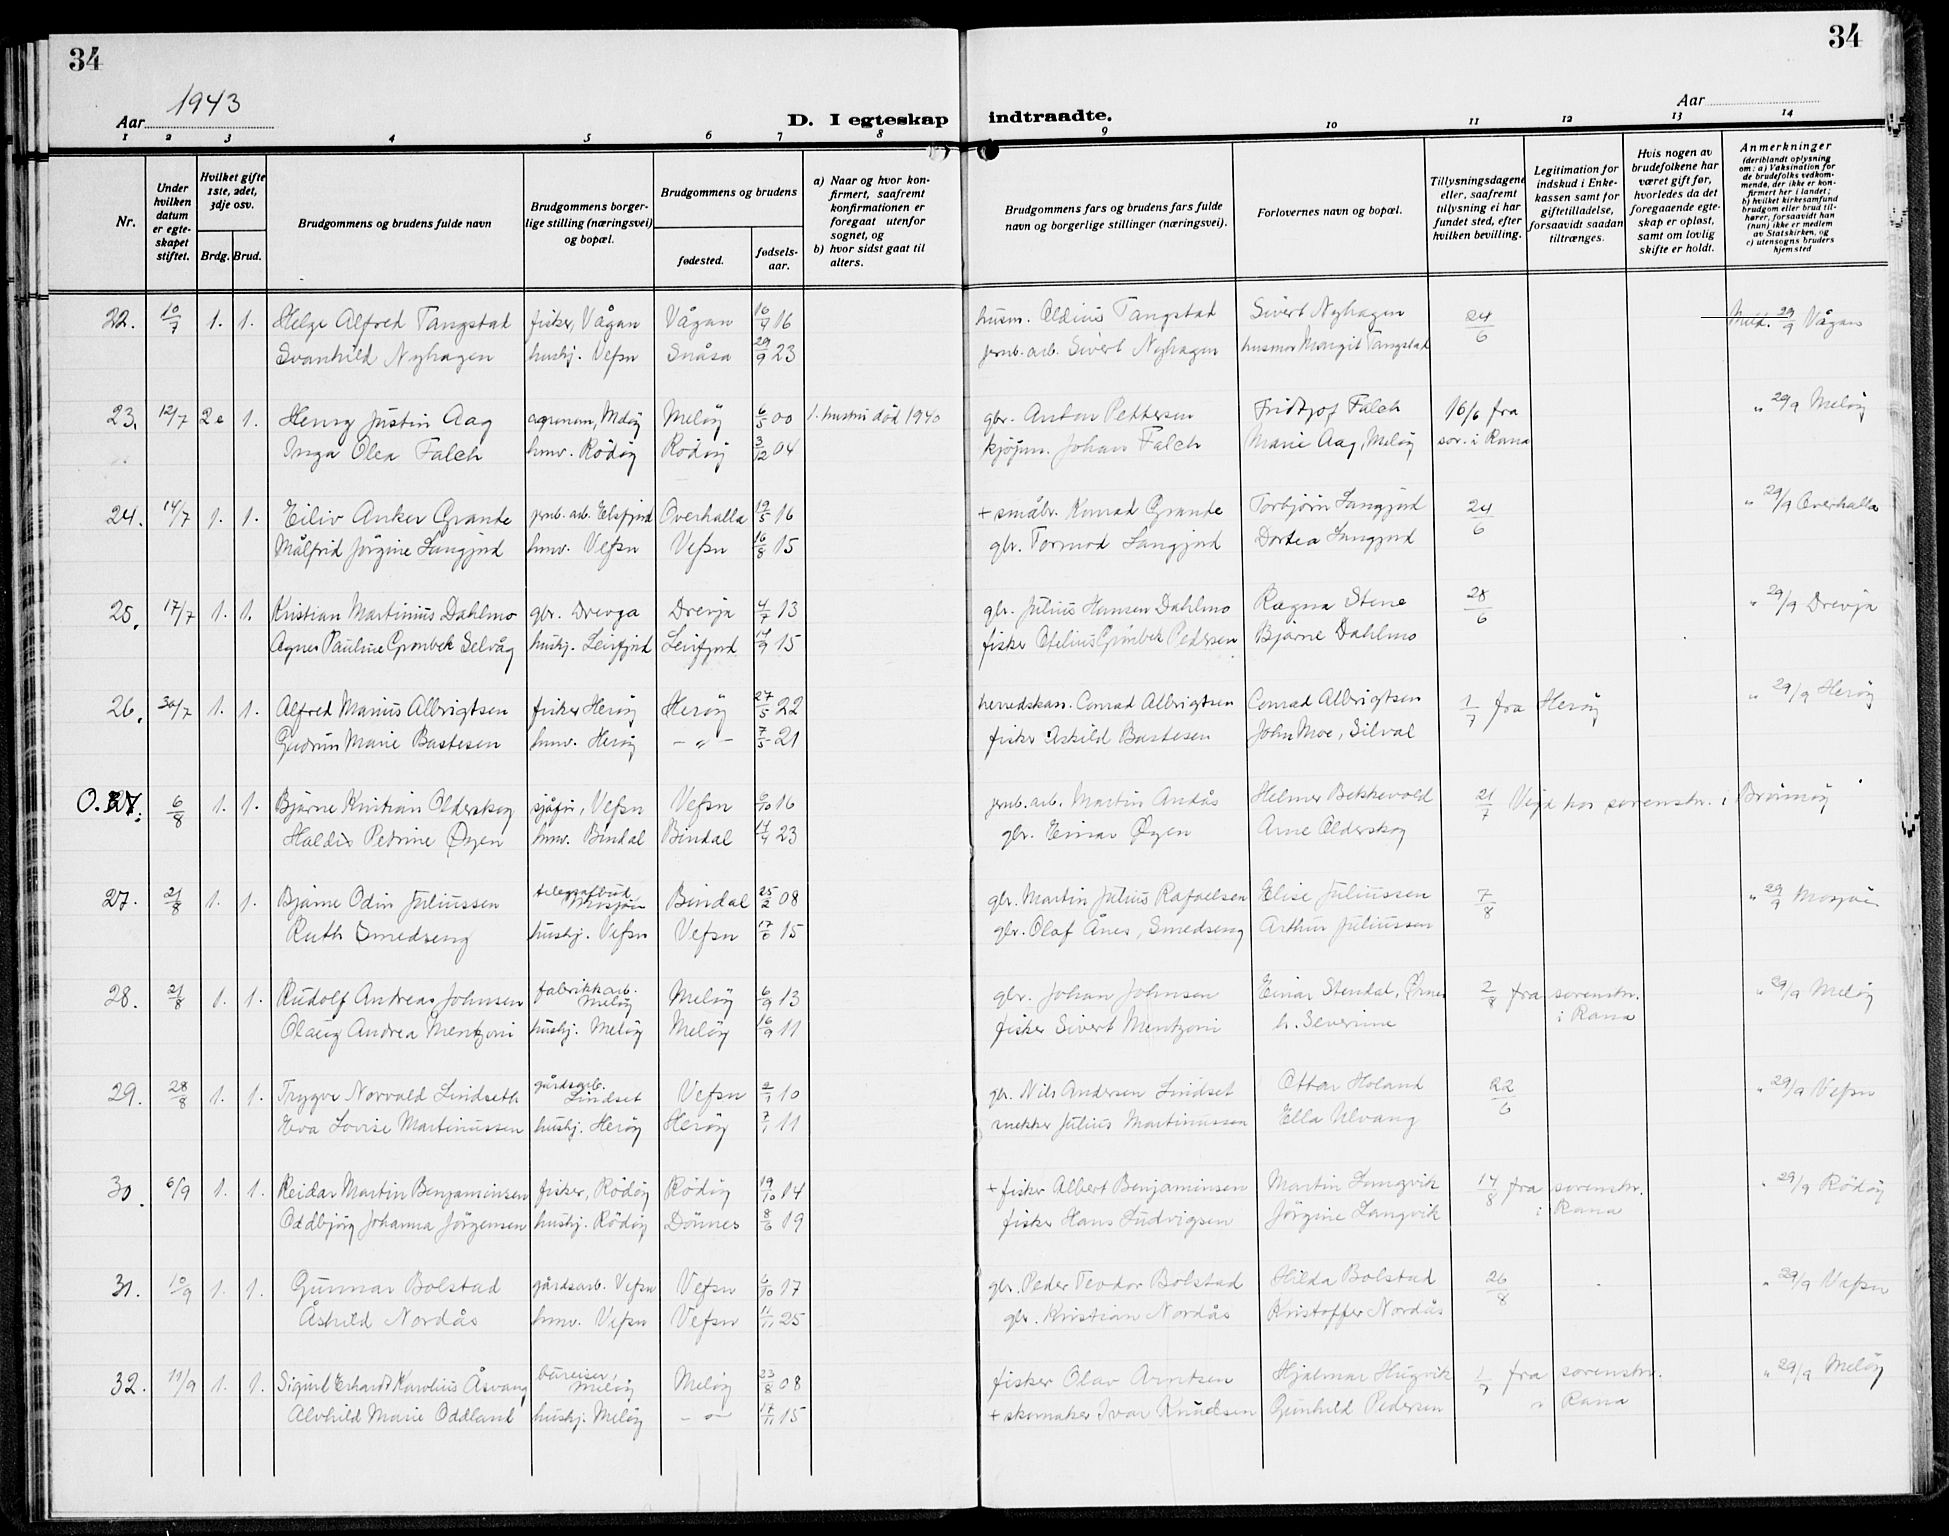 34
34
Aar 1943
D. I egteskap indtraadte.
Aar
1 2 3 4 5 6 7 8 9 10 11 12 13 14
Nr.
Under hvilken datum er egteskapet stiftet.
Hvilket gifte 1ste, 2det, 3dje osv.
Brdg. Brud.
Brudgommens og brudens fulde navn
Brudgommens borgerlige stilling (næringsvei) og bopæl.
Brudgommens og brudens
fødested.
fødselsaar.
a) Naar og hvor konfirmert, saafremt konfirmationen er foregaat utenfor sognet, og
b) hvor sidst gaat til alters.
Brudgommens fars og brudens fars fulde navn og borgerlige stillinger (næringsvei).
Forlovernes navn og bopæl.
Tillysningsdagene eller, saafremt tillysning ei har fundet sted, efter hvilken bevilling.
Legitimation for indskud i Enkekassen samt for giftetilladelse, forsaavidt saadan tiltrænges.
Hvis nogen av brudefolkene har været gift før, hvorledes da det foregaaende egteskap er opløst, samt om lovlig skifte er holdt.
Anmerkninger (deriblandt oplysning om: a) Vaksination for de brudefolks vedkommende, der ikke er konfirmert her i landet; b) hvilket kirkesamfund brudgom eller brud tilhører, forsaavidt han (hun) ikke er medlem av Statskirken, og c) utensogns bruders hjemsted
22. 10/7 1. 1. Helge Alfred Tangstad fisker, Vågan Vågan 16/9 16 husm. Aldius Tangstad Sivert Nyhagen 24/6 Meld. 29/9 Vågan
Svanhild Nyhagen hushj. Vefsn Snåsa 29/9 23 jernb. arb. Sivert Nyhagen husmor Margit Tangstad
23. 12/7 2e 1. Henry Justin Aag agronom, Meløy Meløy 6/5 00 1. hustru død 1940 gbr. Anton Pettersen Fridtjof Falch 16/6 fra " 29/9 Meløy
Inga Olea Falch hmv. Rødøy Rødøy 3/12 04 kjøpm. Johan Falch Marie Aag, Meløy sor. i Rana
24. 14/7 1. 1. Eiliv Anker Grande jernb. arb. Elsfjord Overhalla 19/5 16 + småbr. Konrad Grande Torbjørn Langjord 24/6 " 29/9 Overhalla
Målfrid Jørgine Langjord hmv. Vefsn Vefsn 16/8 15 gbr. Tormod Langjord Dortea Langjord
25. 17/7 1. 1. Kristian Martinius Dahlmo gbr. Drevja Drevja 4/7 13 gbr. Julius Hansen Dahlmo Ragna Stene 28/6 " 29/9 Drevja
Agnes Pauline Grønbek Selvåg hushj. Leirfjord Leirfjord 14/9 15 fisker Otelius Grønbek Pedersen Bjarne Dahlmo
26. 30/7 1. 1. Alfred Marius Albrigtsen fisker Herøy Herøy 27/5 22 herredskass. Conrad Albrigtsen Conrad Albrigtsen 1/7 fra Herøy " 29/9 Herøy
Gudrun Marie Bastesen hmv. Herøy - " - 7/5 21 fisker Askild Bastesen John Moe, Silval
O. 27. 6/8 1. 1. Bjarne Kristian Olderskog sjåfør, Vefsn Vefsn 6/10 16 jernb. arb. Martin Andås Helmer Bekkevold 21/7 Vigd hos sorenskr. i Brønnøy
Haldis Pedrine Øyen hmv. Bindal Bindal 17/4 23 gbr. Einar Øyen Arne Olderskog
27. 21/8 1. 1. Bjarne Odin Juliussen telegrafbud Mosjøen Bindal 25/2 08 gbr. Martin Julius Rafaelsen Elise Juliussen 7/8 " 29/9 Mosjøen
Ruth Smedseng hushj. Vefsn Vefsn 17/6 15 gbr. Olaf Ånes, Smedseng Arthur Juliussen
28. 21/8 1. 1. Rudolf Andreas Johnsen fabrikkarb. Meløy Meløy 6/9 13 gbr. Johan Johnsen Einar Stendal, Ørnes 2/8 fra sorenskr. " 29/9 Meløy
Olaug Andrea Mentzoni hushj. Meløy Meløy 16/9 11 fisker Sivert Mentzoni h. Severine i Rana
29. 28/8 1. 1. Trygve Norvald Lindseth gårdsarb. Lindset Vefsn 2/1 10 gbr. Nils Andersen Lindset Ottar Holand 22/6 " 29/9 Vefsn
Eva Lovise Martinussen hushj. Herøy Herøy 7/1 11 snekker Julius Martinussen Ella Ulvang
30. 6/9 1. 1. Reidar Martin Benjaminsen fisker, Rødøy Rødøy 19/10 14 + fisker Albert Benjaminsen Martin Langvik 14/8 fra sorenskr. " 29/9 Rødøy
Oddbjørg Johanna Jørgensen hushj. Rødøy Dønnes 8/6 19 fisker Hans Ludvigsen Jørgine Langvik i Rana
31. 10/9 1. 1. Gunnar Bolstad gårdsarb. Vefsn Vefsn 6/10 17 gbr. Peder Teodor Bolstad Hilda Bolstad 26/8 " 29/9 Vefsn
Åshild Nordås hmv. Vefsn Vefsn 11/11 25 gbr. Kristian Nordås Kristoffer Nordås
32. 11/9 1. 1. Sigurd Erhardt Karolius Åsvang bureiser, Meløy Meløy 23/8 08 fisker Olav Arntsen Hjalmar Hugvik 1/7 fra sorenskr. " 29/9 Meløy
Alvhild Marie Oddland hushj. Meløy - " - 17/11 15 + skomaker Ivar Knudsen Gunhild Pedersen " Rana